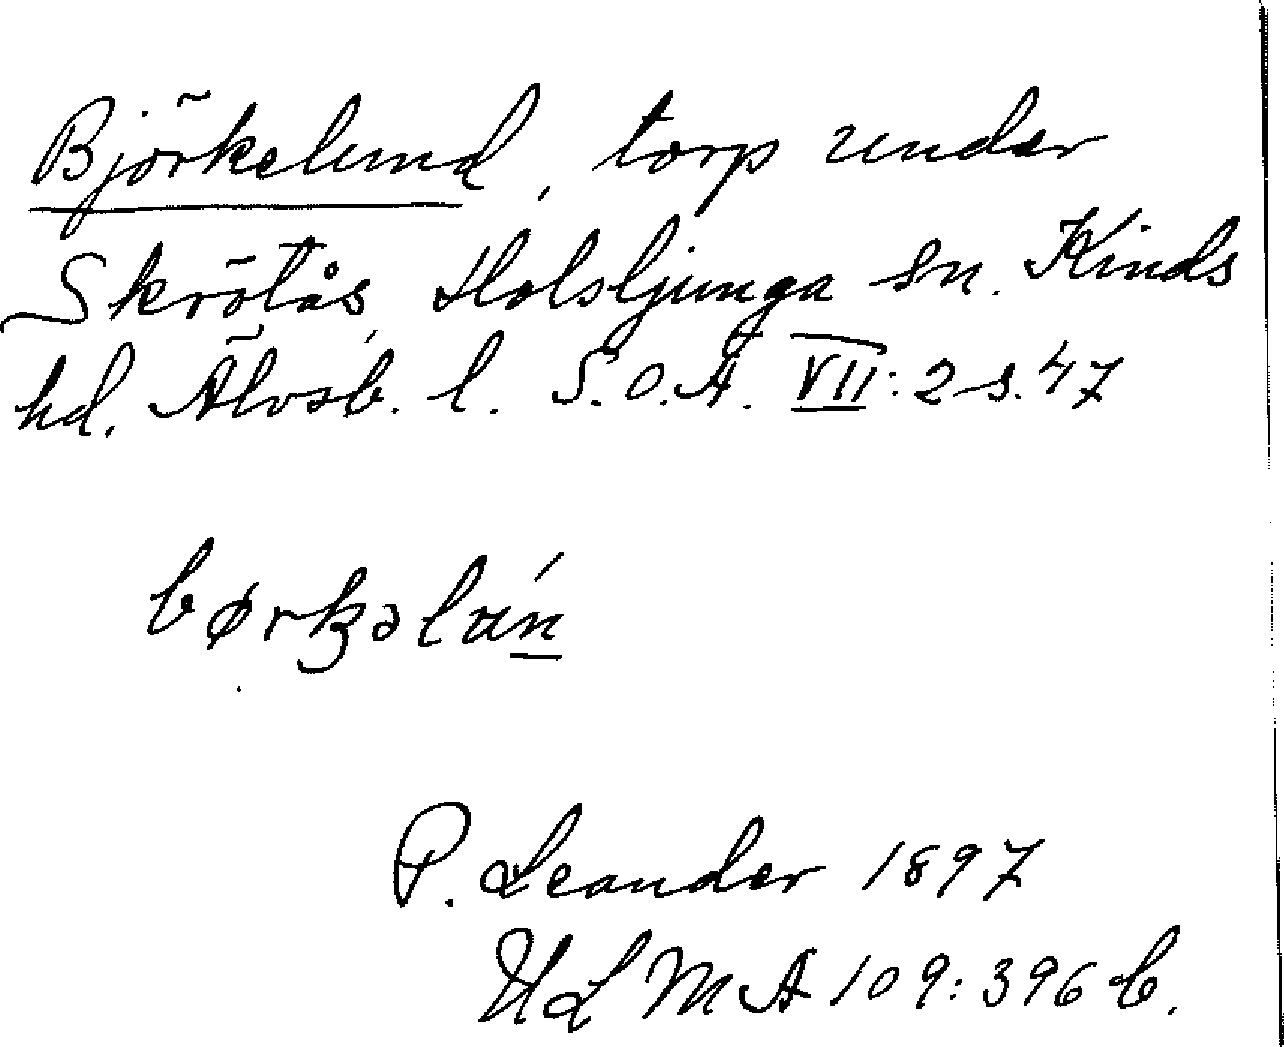 Björkelund, torp under
Skrötås, Holsljunga sn. Kinds
hd. Älvsb. l. S.O.Ä. VII: 2 s. 47
P. Leander 1897
ULMA 109: 396 b.